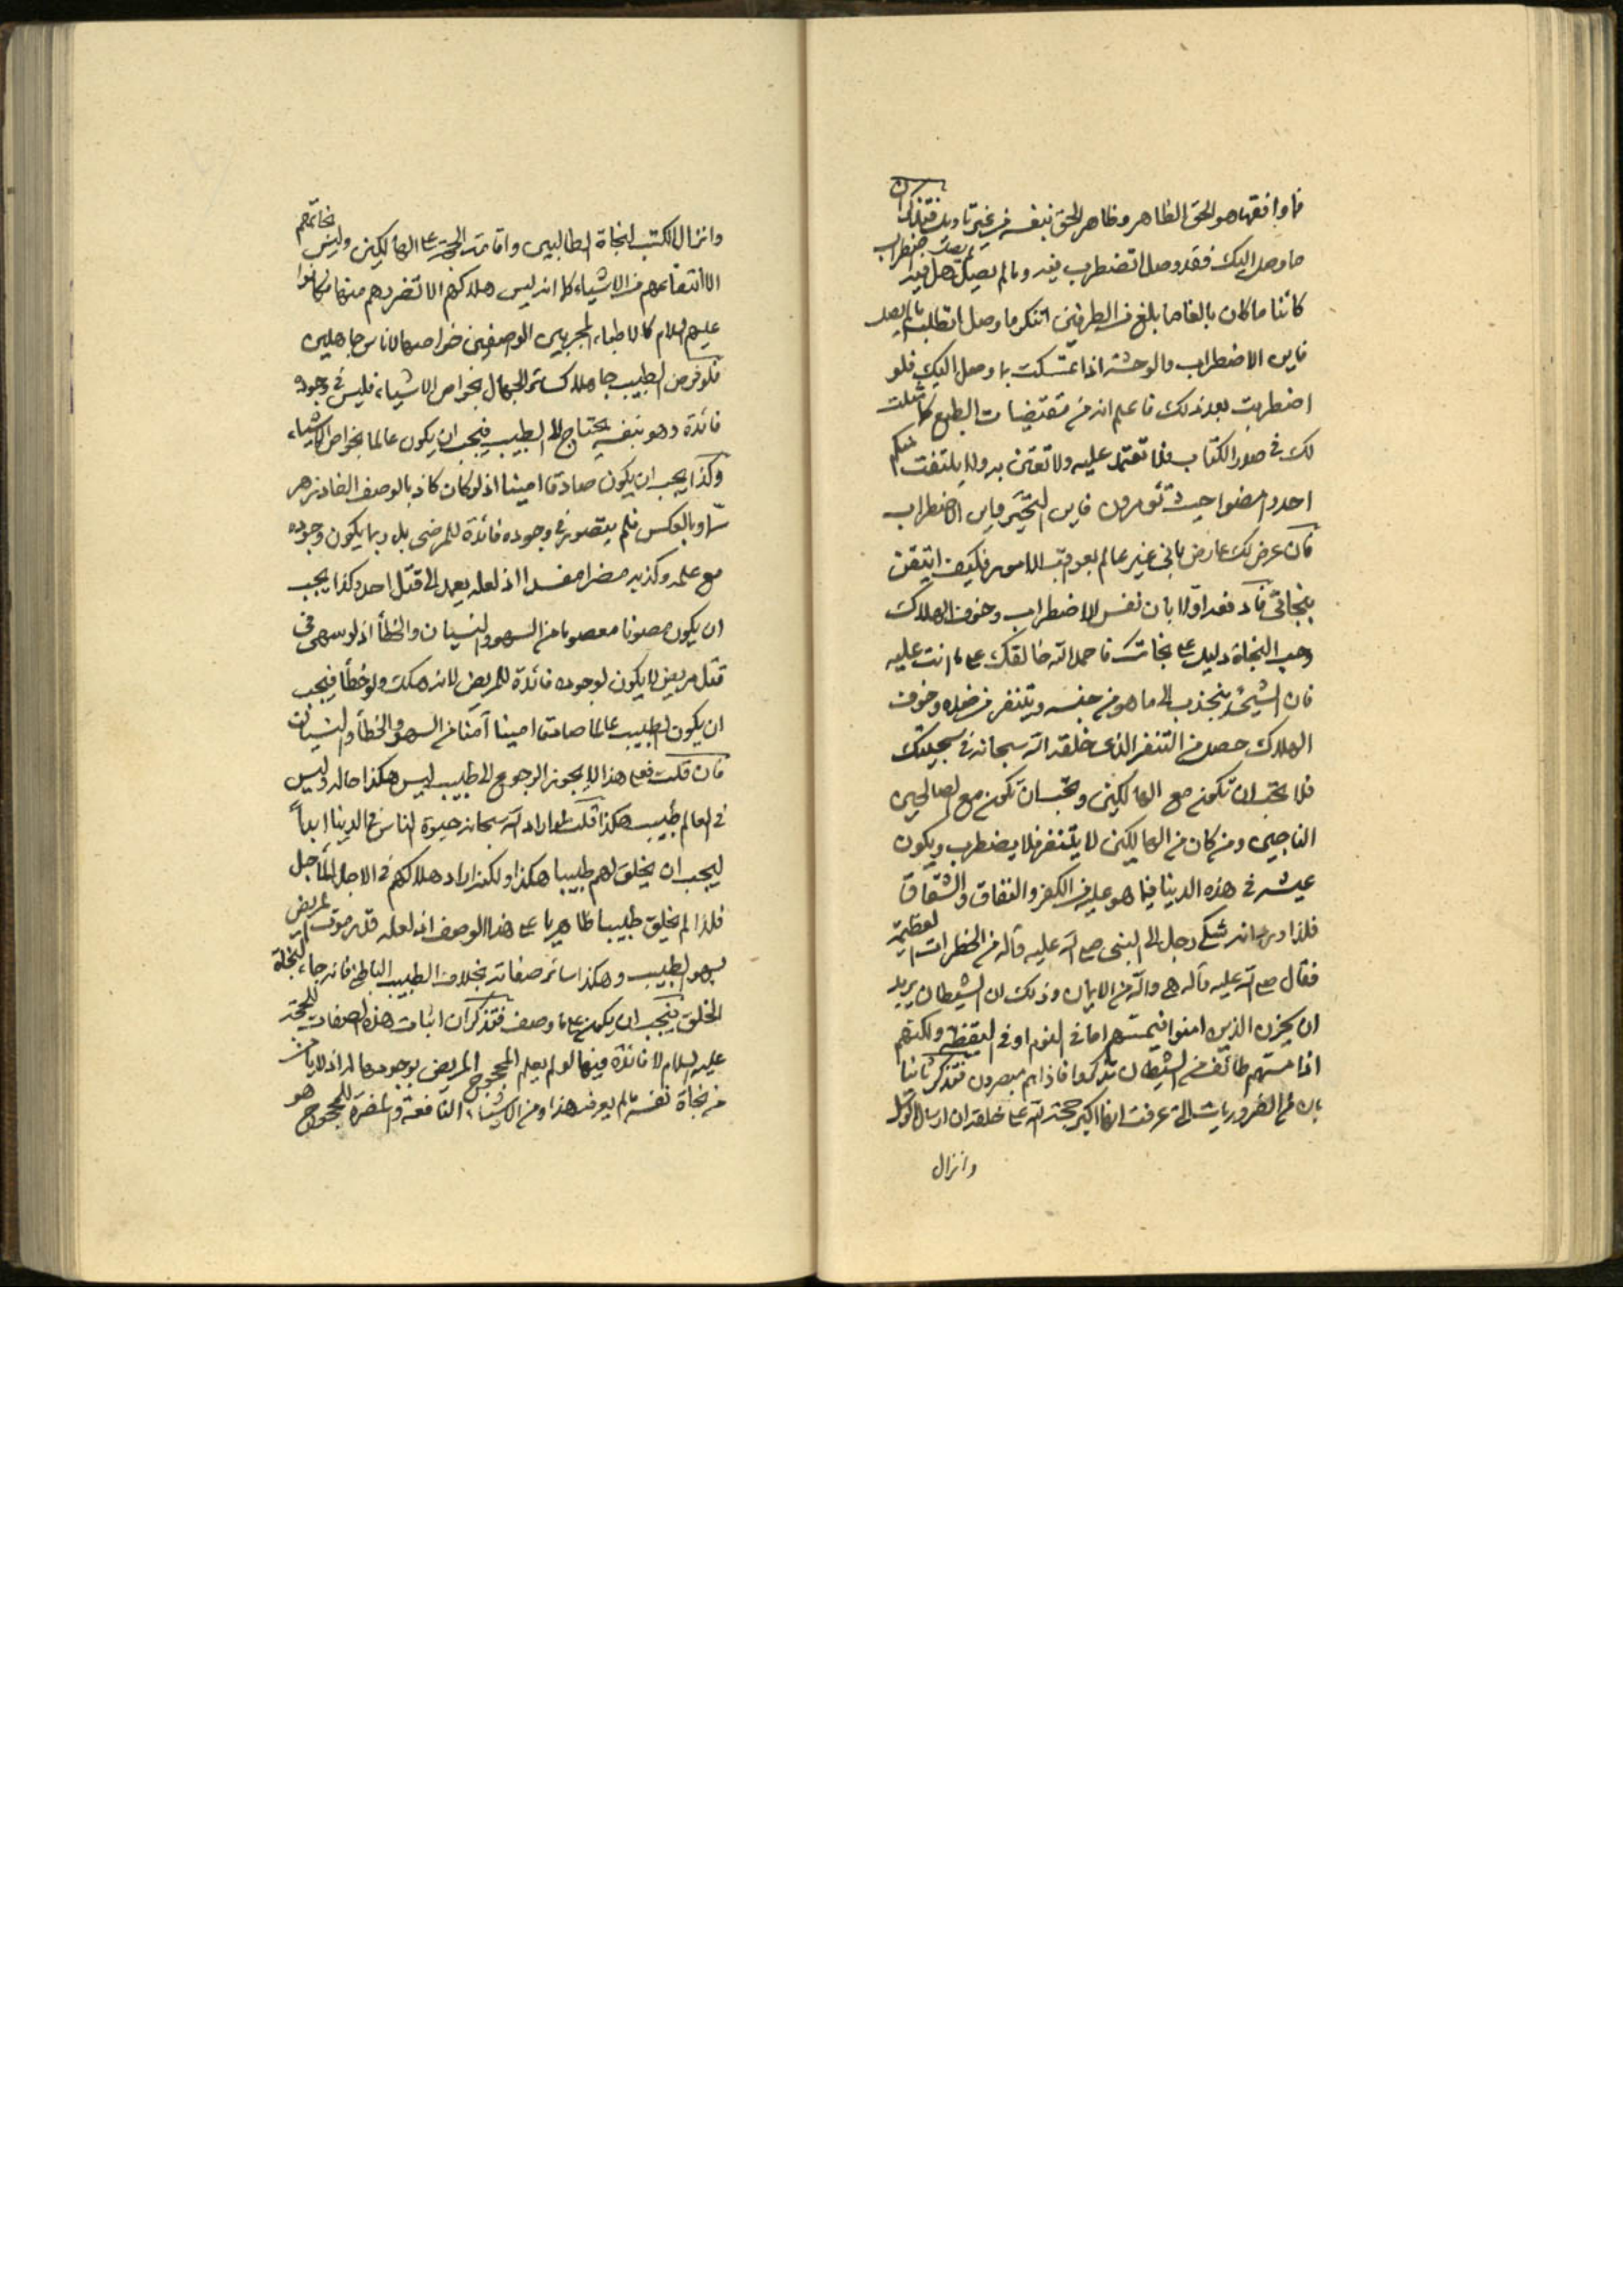 فما وافقها هو الحق الظاهر وظاهر الحق بنفسه من غير تاويل فتذكر ان
ما وصل اليك فقد وصل اتضطرب فيه وما لم يصل هل فيه اضطراب
كائنا ما كان بالغا ما بلغ من الطرفين اتنكر ما وصل اتطلب ما لم يصل
فاين الاضطراب والوحشة اذا تمسكت بما وصل اليك فلو
اضطربت بعد ذلك فاعلم انه من مقتضيات الطبع كما مثلت
لك في صدر الكتاب فلا تعتمد عليه ولا تعتن به ولا يلتفت منكم
احد وامضوا حيث تؤمرون فاين التحير واين الاضطراب
فان عرض لك عارض باني غير عالم بعواقب الامور فكيف اتيقن
بنجاتي فادفعه اولا بان نفس الاضطراب وخوف الهلاك
وحب النجاة دليل على نجاتك فاحمد الله خالقك على ما انت عليه
فان الشيء ينجذب الى ما هو من جنسه ويتنفر من ضده وخوف
الهلاك حصل من التنفر الذي خلقه الله سبحانه في سجيتك
فلا تحب ان تكون مع الهالكين وتحب ان تكون مع الصالحين
الناجين ومن كان من الهالكين لا يتنفر فلا يضطرب ويكون
عيشه في هذه الدنيا فيما هو عليه من الكفر والنفاق والشقاق
فلذا ورد انه شكى رجل الى النبي صلى الله عليه وآله من الخطرات العظيمة
فقال صلى الله عليه وآله هي والله من الايمان وذلك ان الشيطان يريد
ان يحزن الذين امنوا فيمسهم اما في النوم او في اليقظة ولكنهم
اذا مسهم طائف من الشيطان تذكروا فاذا هم مبصرون فتذكر ثانيا
بان من الضروريات التي عرفت انها اكبر حجة الله على خلقه ان ارسال الرسل
وانزال
وانزال الكتب لنجاة الطالبين واقامة الحجة على الهالكين وليس نجاتهم
الا انتفاعهم من الاشياء كما انه ليس هلاكهم الا تضررهم منها فكانوا
عليهم السلام كالاطباء المجربين الواصفين خواصها لاناس جاهلين
فلو فرض الطبيب جاهلا كسائر الجهال بخواص الاشياء فليس في وجوده
فائدة وهو بنفسه يحتاج الى الطبيب فيجب ان يكون عالما بخواص الاشياء
وكذا يجب ان يكون صادقا امينا اذ لو كان كاذبا لوصف الفادزهر
سما وبالعكس فلم يتصور في وجوده فائدة للمرضى بل ربما يكون وجوده
مع علمه وكذبه مضرا مفسدا اذ لعله يعمد الى قتل احد وكذا يجب
ان يكون مصونا معصوما من السهو والنسيان والخطأ اذ لو سهى في
قتل مريض لا يكون لوجوده فائدة للمريض لانه هلك ولو خطأ فيجب
ان يكون الطبيب عالما صادقا امينا آمنا من السهو والخطأ والنسيان
فان قلت فعلى هذا لا يجوز الرجوع الى طبيب ليس هكذا حاله وليس
في العالم طبيب هكذا قلت لو اراد الله سبحانه حيوة الناس في الدنيا ابداً
ليجب ان يخلق لهم طبيبا هكذا ولكنه اراد هلاكهم في الاجل المأجل
فلذا لم يخلق طبيبا ظاهريا على هذا الوصف اذ لعله قدر موت المريض
بسهو الطبيب وهكذا سائر صفاته بخلاف الطبيب الباطني فانه جاء لنجاة
الخلق فيجب ان يكون على ما وصف فتذكر ان اثبات هذه الصفات للحجة
عليه السلام لا فائدة فيها لو لم يعلم المحجوج المريض بوجودها له اذ لا يأمن
من نجاة نفسه ما لم يعرف هذا ومن الاشياء النافعة والمضرة للمحجوج هو